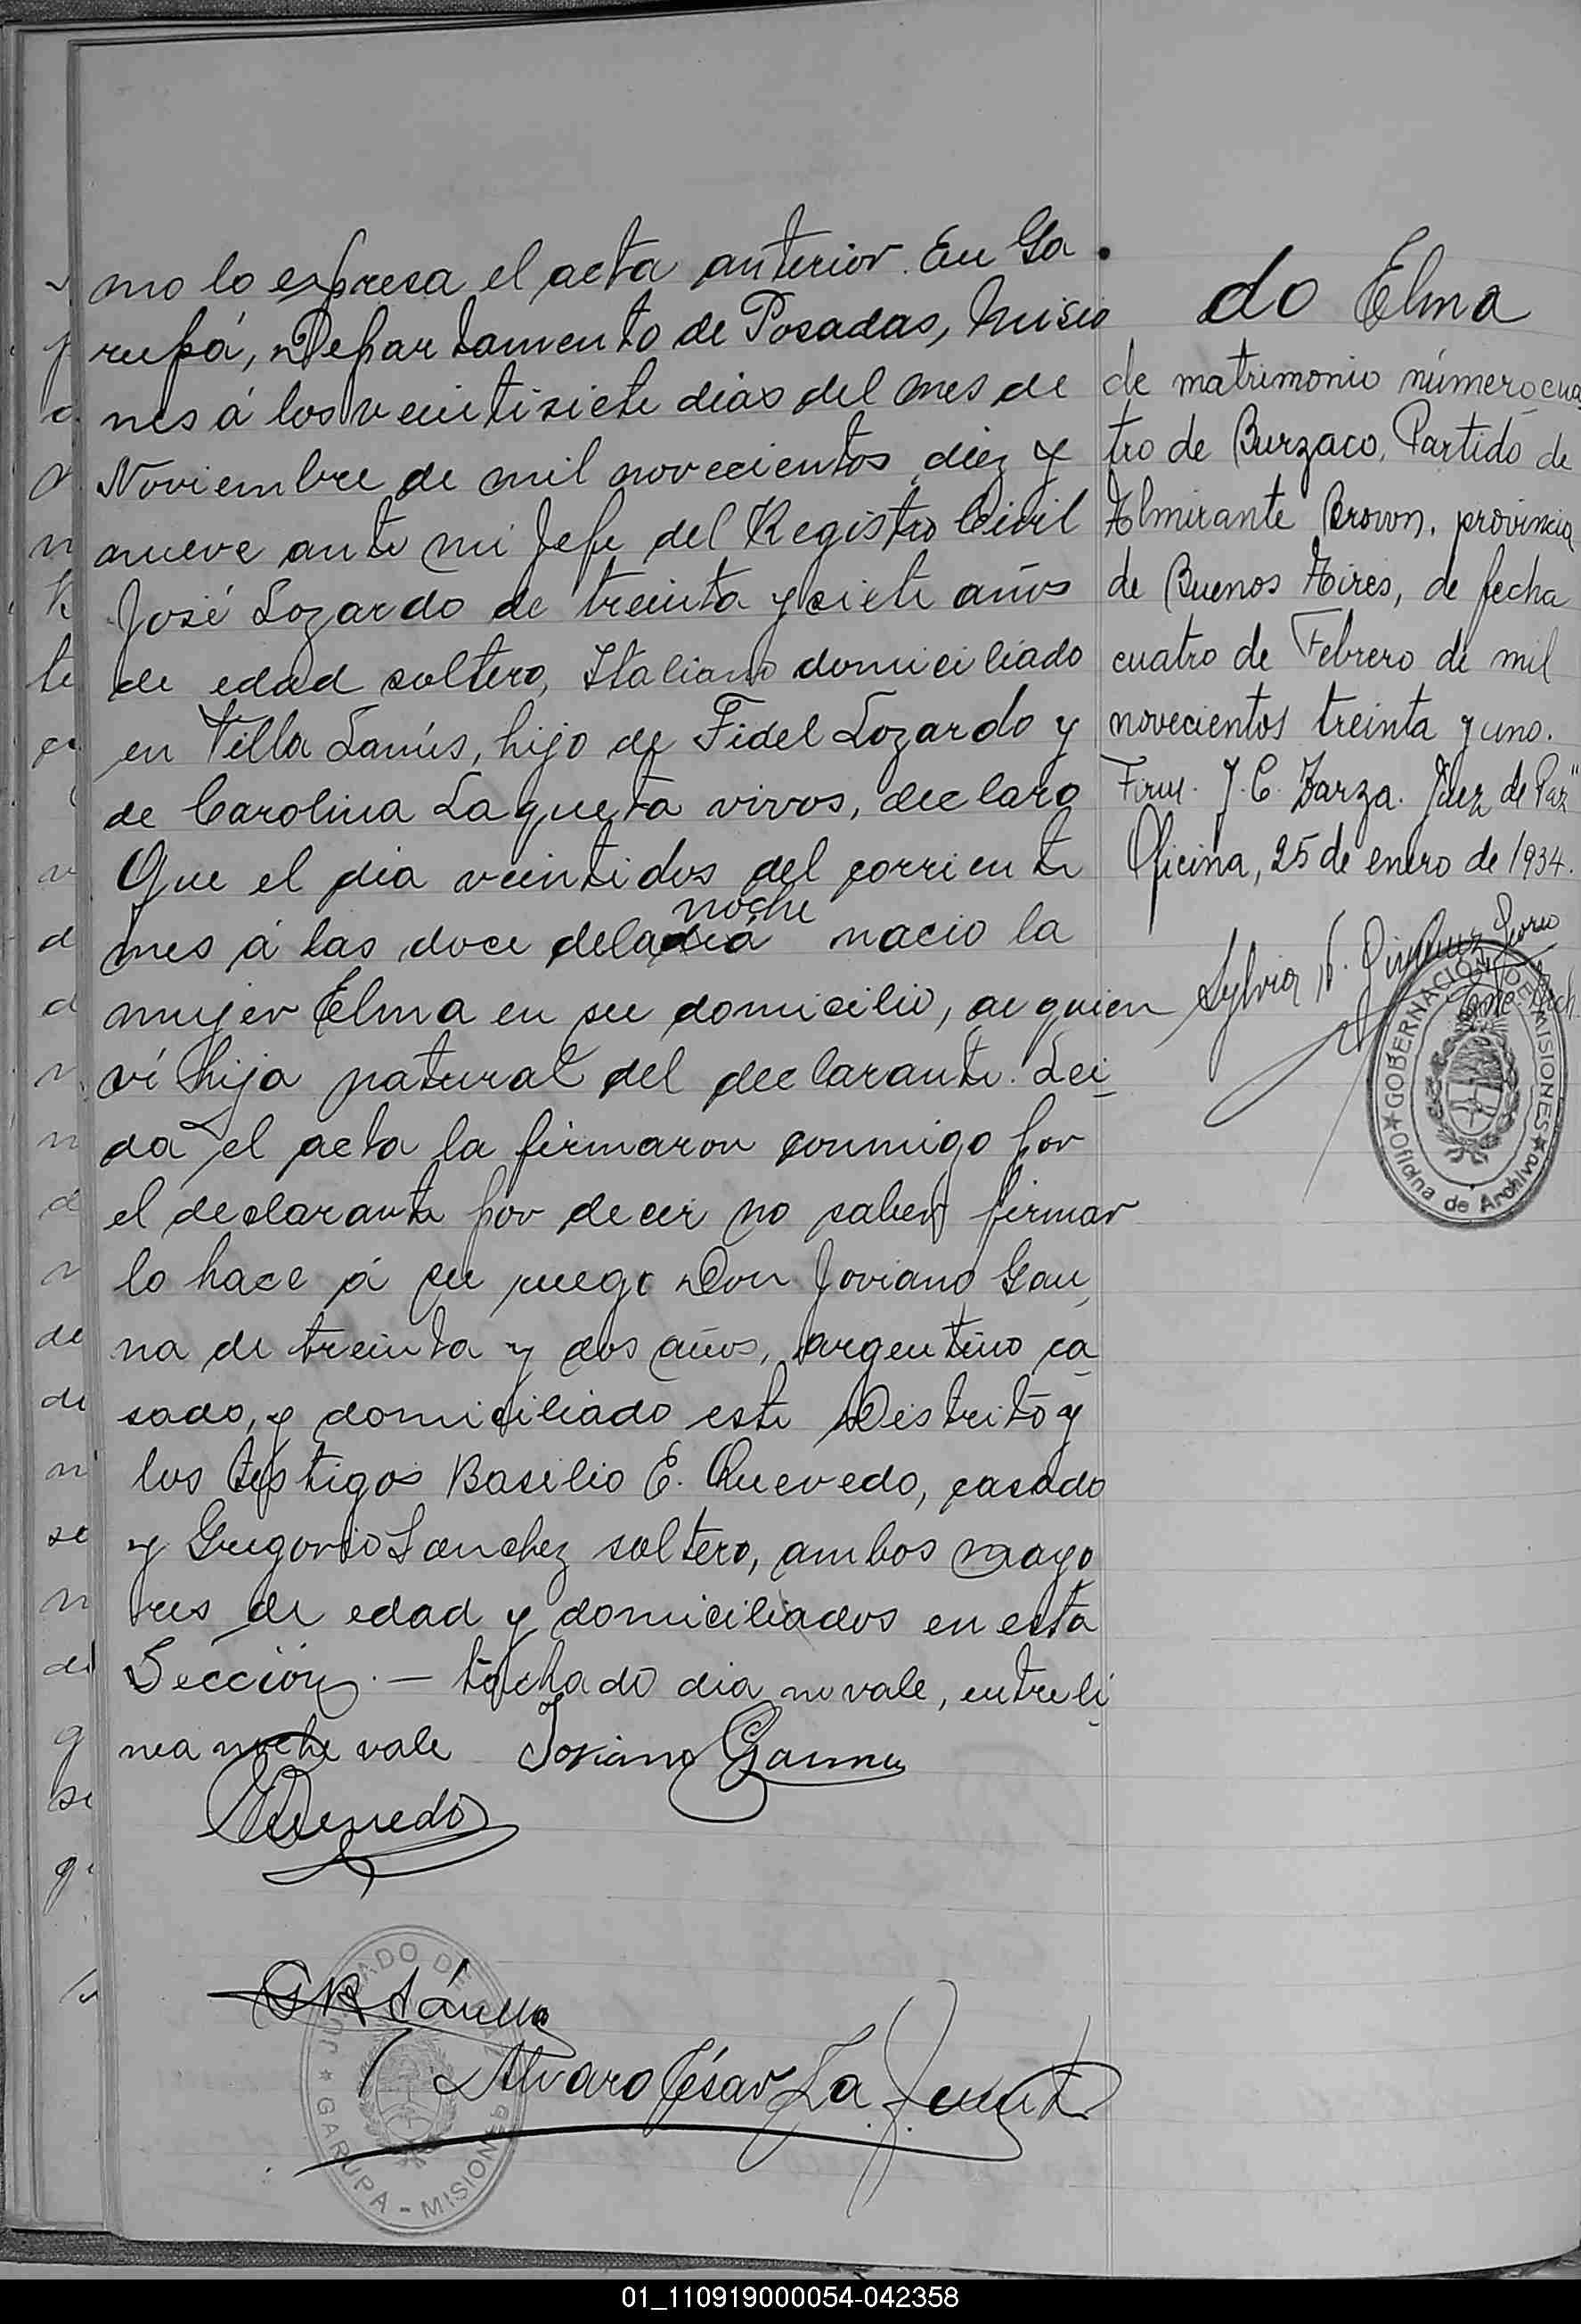 mo lo expresa el acta anterior. En Ga
rupá, Departamento de Posadas, Misio
nes á los veintisiete dias del mes de
Noviembre de mil novecientos diez y
nueve ante mi Jefe del Registro Civil
José Lozardo de treinta y siete años
de edad soltero, Italiano domiciliado
en Villa Lanús, hijo de Fidel Lozardo y
de Carolina Laqueta vivos, declaro
Que el dia veintidos del corriente
noche
mes á las doce dela dia nacio la
mujer Elma en su domicilio, a quien
vi hija natural del declarante. Lei
da el acta la firmaron conmigo por
el declarante por decir no saber firmar
lo hace á su ruego Don Joviano Gau
na de treinta y dos años, argentino ca
sado, y domiciliado este Distrito y
los testigos Basilio E. Quevedo, casado
y Gregorio Sanchez soltero, ambos mayo
res de edad y domiciliados en esta
Sección. — tachado dia no vale, entreli
nea noche vale Joviano Gauna
Quevedo
GR Sánchez
Alvaro César La
JUZGADO DE PAZ
GARUPA - MISIONES
do Elma
de matrimonio número cua
tro de Burzaco, Partido de
Almirante Brown, provincia
de Buenos Aires, de fecha
cuatro de Febrero de mil
novecientos treinta y uno.
Firm. J. C. Zarza. Juez de Paz"
Oficina, 25 de enero de 1934.
Sylvia N. Gimenez
GOBERNACION DE MISIONES
Oficina de Archivo
01_110919000054-042358